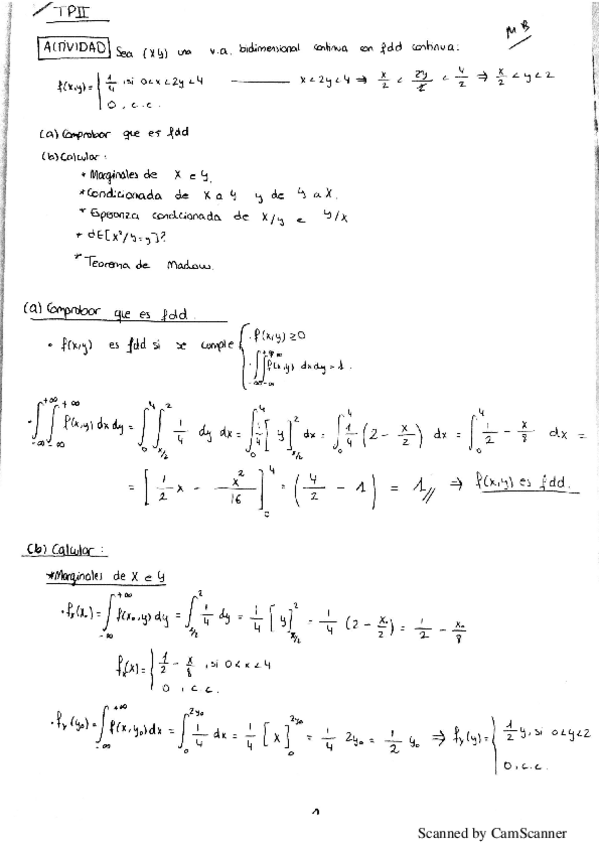 TPII
M B
ACTIVIDAD Sea (X,Y) una v.a. bidimensional continua con fdd continua:
f(x,y) = { 1/4, si 0<x<2y<4 —— x<2y<4 ⇒ x/2 < 2y/2 < 4/2 ⇒ x/2 < y < 2
0, c.c.
(a) Comprobar que es fdd
(b) Calcular:
* Marginales de X e Y.
* Condicionada de X a Y y de Y a X.
* Esperanza condicionada de X/Y e Y/X
* ¿E[X²/Y=y]?
* Teorema de
(a) Comprobar que es fdd.
• f(x,y) es fdd si se cumple { · f(x,y) ≥ 0
· ∫_{-∞}^{+∞} ∫_{-∞}^{+∞} f(x,y) dx dy = 1.
· ∫_{-∞}^{+∞} ∫_{-∞}^{+∞} f(x,y) dx dy = ∫_0^4 ∫_{x/2}^2 1/4 dy dx = ∫_0^4 1/4 [y]_{x/2}^2 dx = ∫_0^4 1/4 (2 - x/2) dx = ∫_0^4 1/2 - x/8 dx =
= [1/2 x - x²/16]_0^4 = (4/2 - 1) = 1// ⇒ f(x,y) es fdd.
(b) Calcular:
* Marginales de X e Y
· f_X(x₀) = ∫_{-∞}^{+∞} f(x₀,y) dy = ∫_{x/2}^2 1/4 dy = 1/4 [y]_{x/2}^2 = 1/4 (2 - x₀/2) = 1/2 - x₀/8
f_X(x) = { 1/2 - x/8, si 0<x<4
0, c.c.
· f_Y(y₀) = ∫_{-∞}^{+∞} f(x,y₀) dx = ∫_0^{2y₀} 1/4 dx = 1/4 [x]_0^{2y₀} = 1/4 2y₀ = 1/2 y₀ ⇒ f_Y(y) = { 1/2 y, si 0<y<2
0, c.c.
1
Scanned by CamScanner